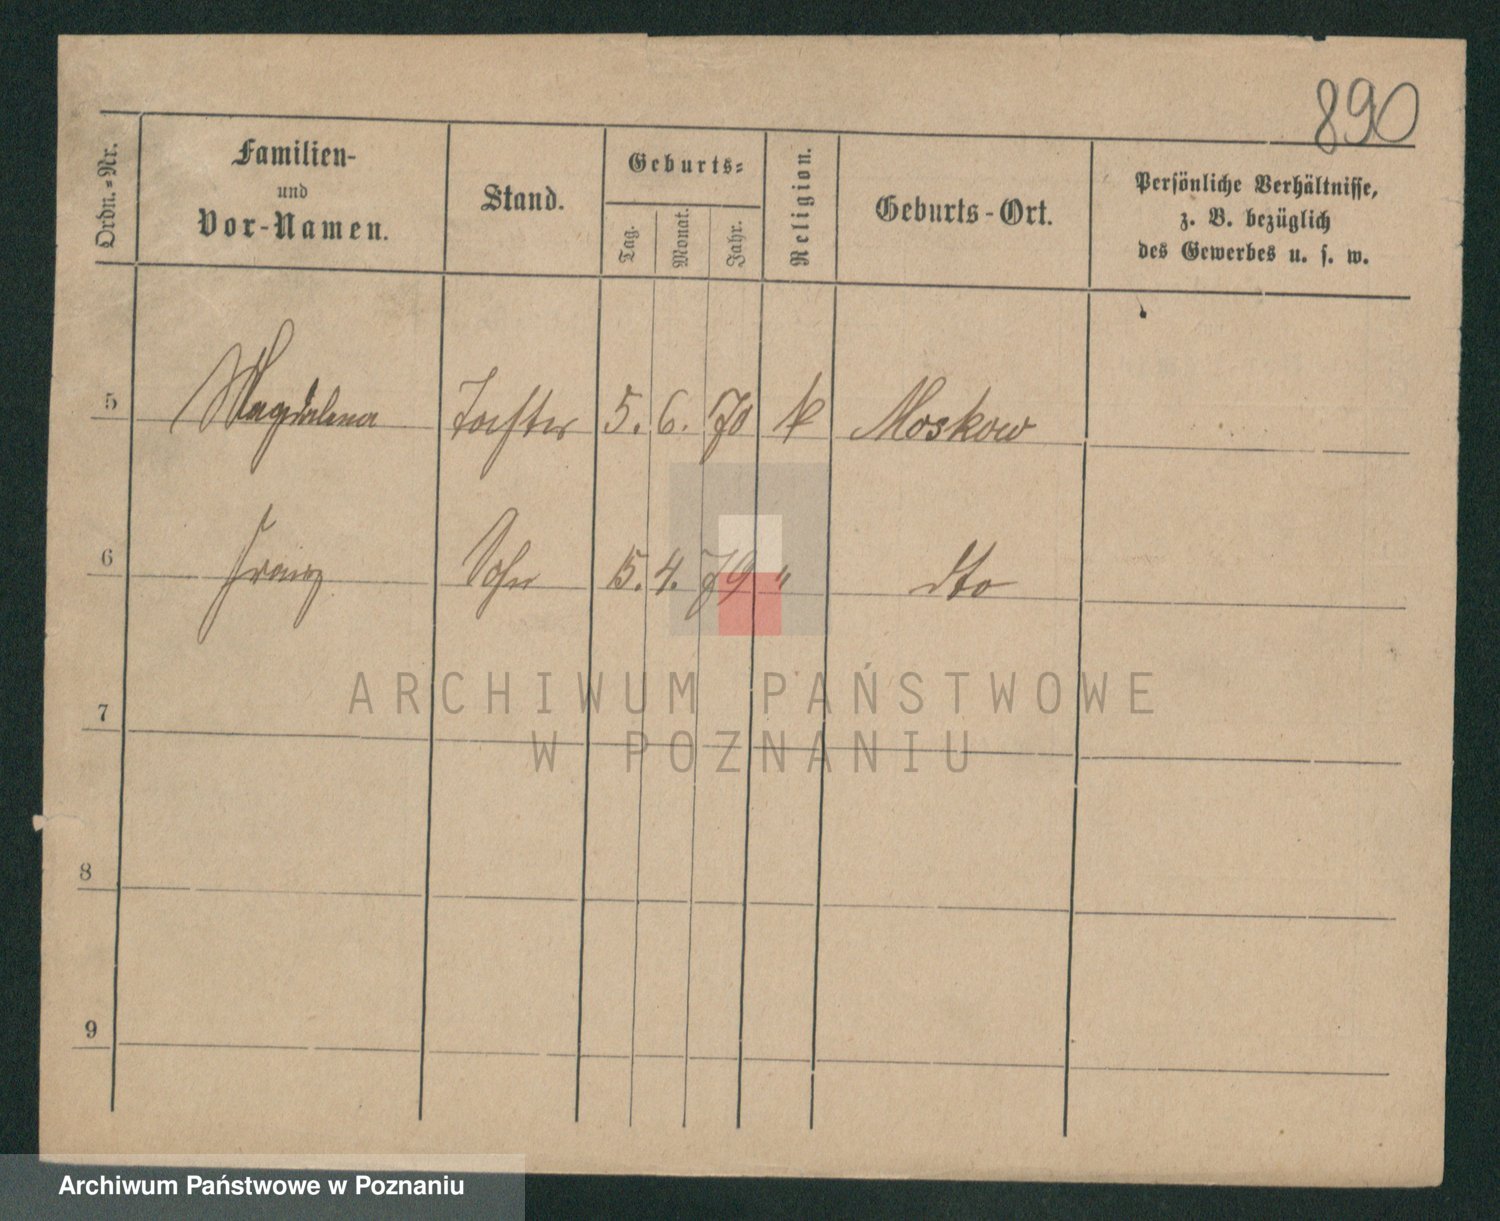 890
Ordn.=Nr.
Familien-
und
Vor-Namen.
Stand.
Geburts=
Tag.
Monat.
Jahr.
Religion.
Geburts-Ort.
Persönliche Verhältnisse,
z. B. bezüglich
des Gewerbes u. s. w.
5 Magdalena Tochter 5. 6. 70 k Moskow
6 Franz Sohn 15. 4. 79 " dto
ARCHIWUM PAŃSTWOWE
7
W POZNANIU
8
9
Archiwum Państwowe w Poznaniu